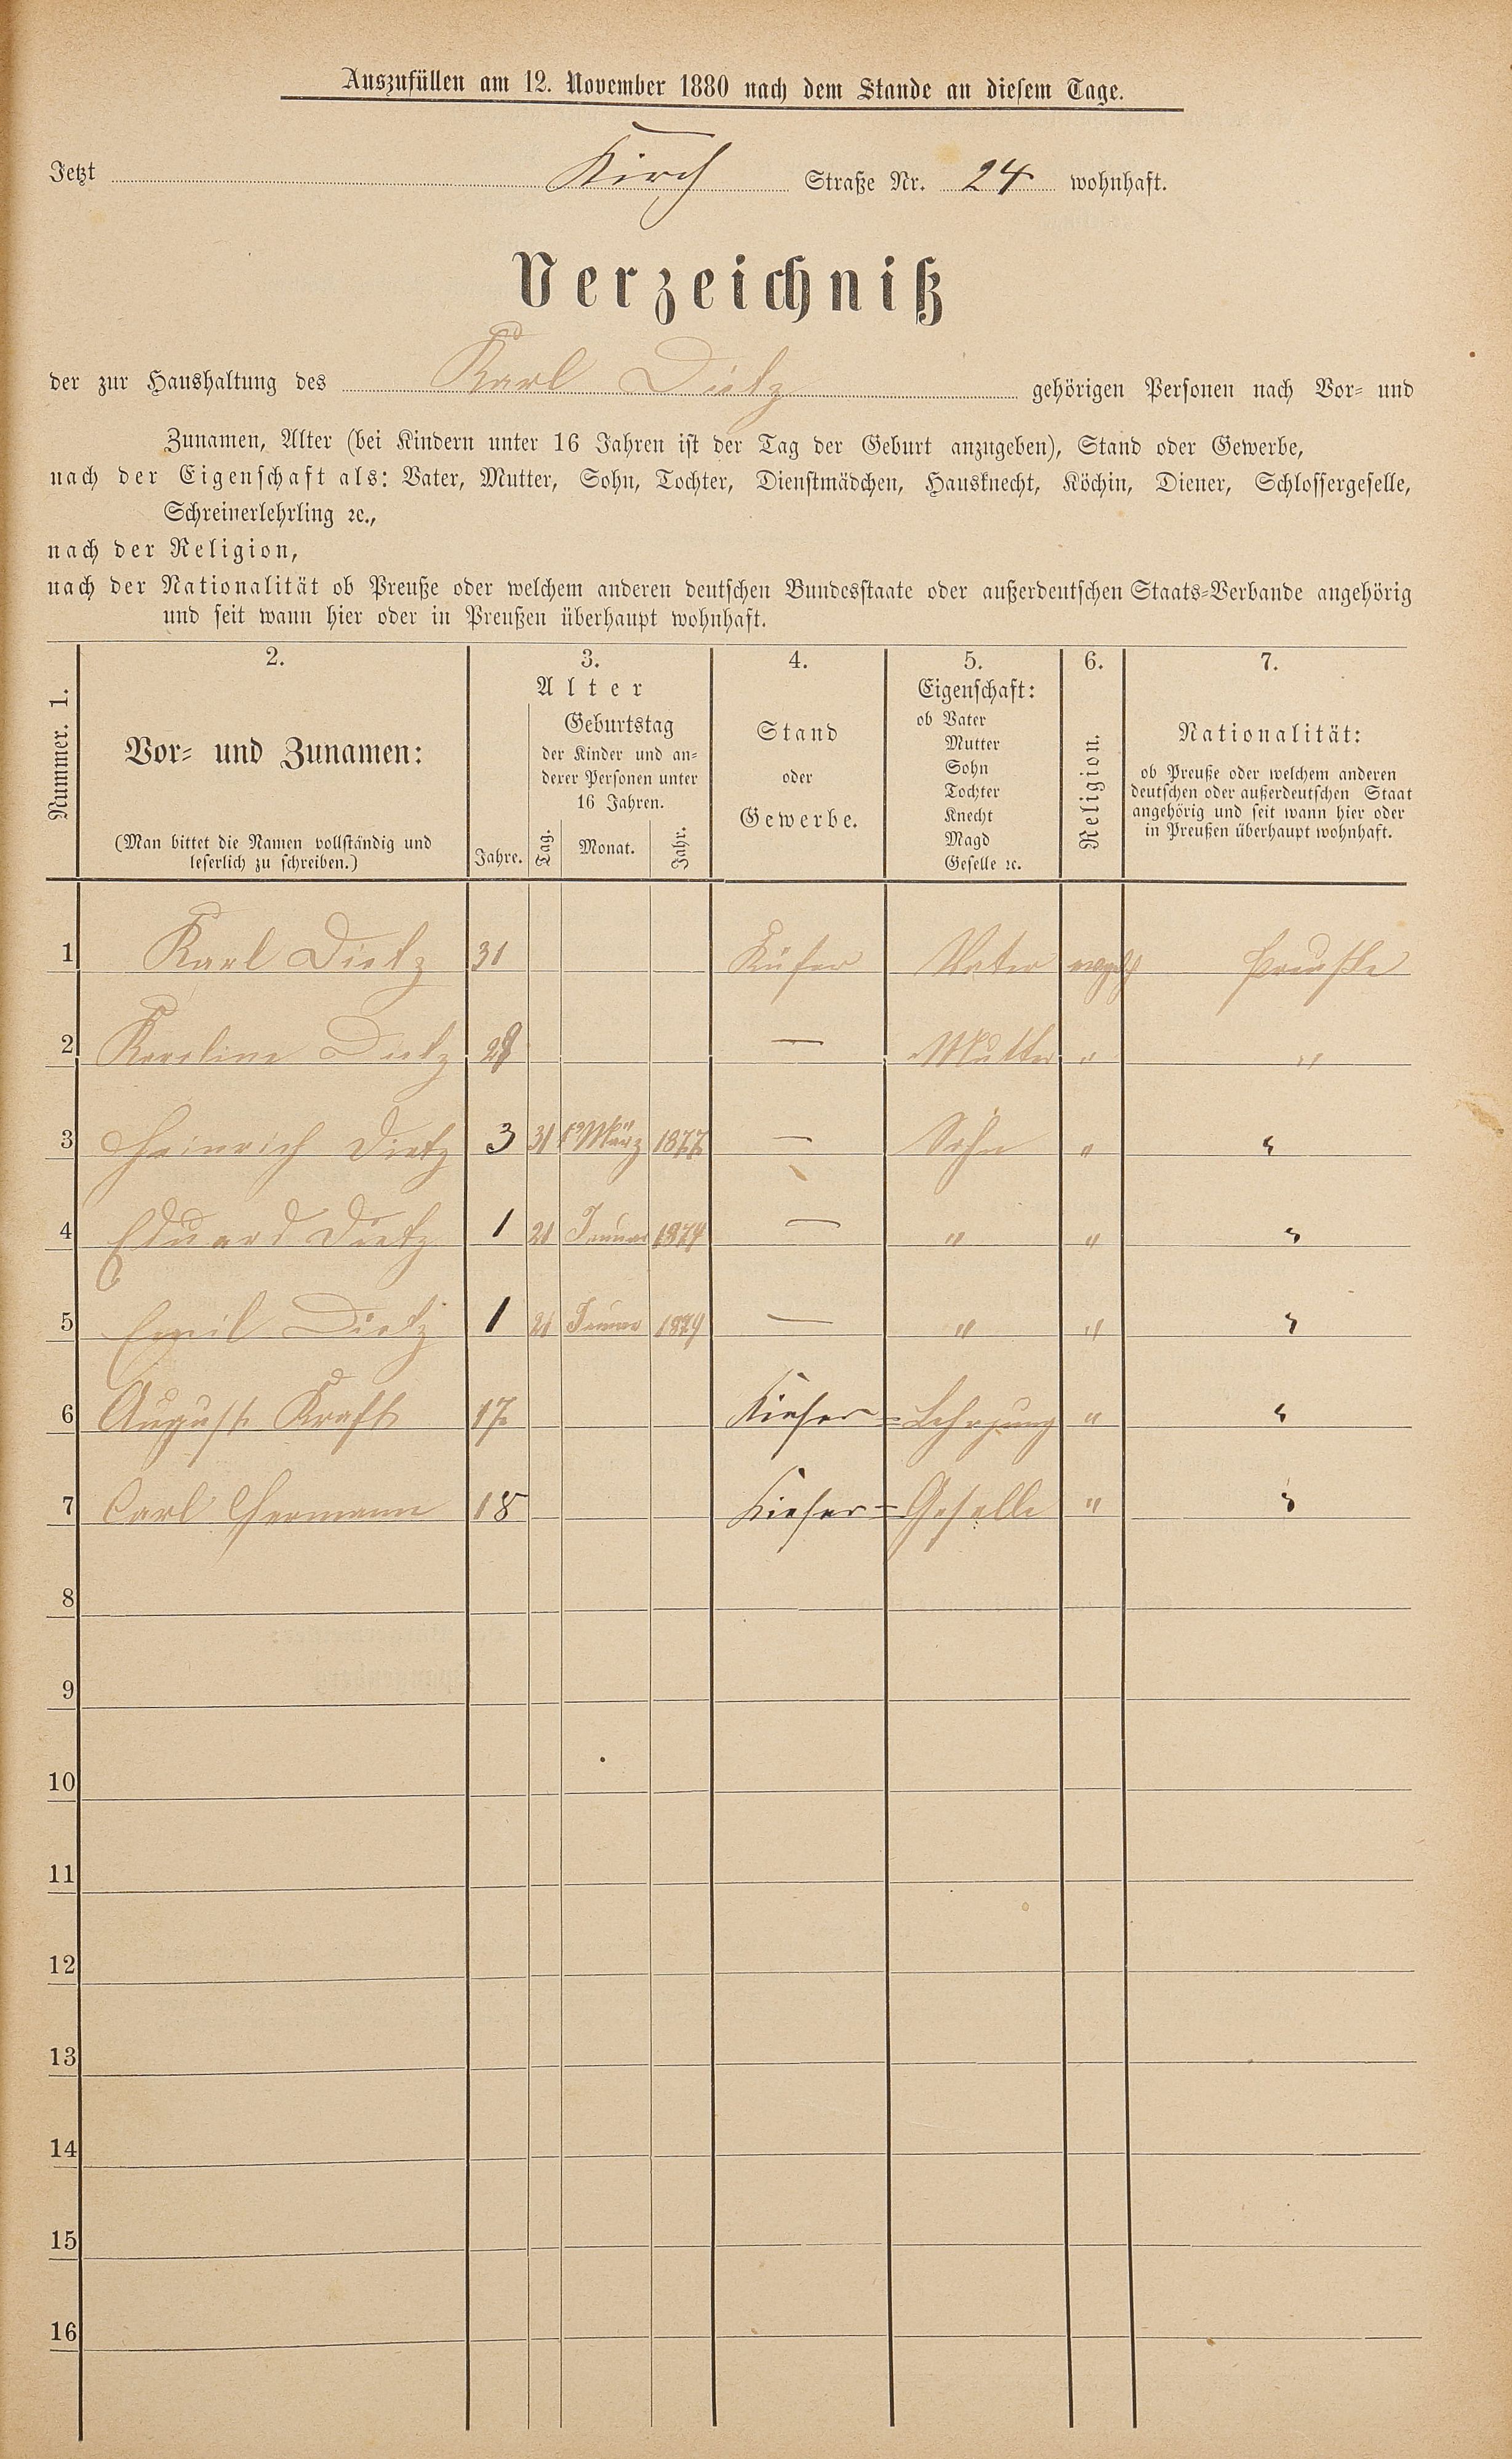 Auszufüllen am 12. November 1880 nach dem Stande an diesem Tage.
Jetzt Kirch Straße Nr. 24 wohnhaft.
Verzeichniß
der zur Haushaltung des Karl Dietz gehörigen Personen nach Vor- und
Zunamen, Alter (bei Kindern unter 16 Jahren ist der Tag der Geburt anzugeben), Stand oder Gewerbe,
nach der Eigenschaft als: Vater, Mutter, Sohn, Tochter, Dienstmädchen, Hausknecht, Köchin, Diener, Schlossergeselle,
Schreinerlehrling ꝛc.,
nach der Religion,
nach der Nationalität ob Preuße oder welchem anderen deutschen Bundesstaate oder außerdeutschen Staats-Verbande angehörig
und seit wann hier oder in Preußen überhaupt wohnhaft.
Nummer. 1.
2.
Vor- und Zunamen:
(Man bittet die Namen vollständig und
leserlich zu schreiben.)
3.
Alter
Jahre.
Geburtstag
der Kinder und an-
derer Personen unter
16 Jahren.
Tag. Monat. Jahr.
4.
Stand
oder
Gewerbe.
5.
Eigenschaft:
ob Vater
Mutter
Sohn
Tochter
Knecht
Magd
Geselle ꝛc.
6.
Religion.
7.
Nationalität:
ob Preuße oder welchem anderen
deutschen oder außerdeutschen Staat
angehörig und seit wann hier oder
in Preußen überhaupt wohnhaft.
1 Karl Dietz 31 Küfer Vater Preuße
2 Karoline Dietz 28 — Mutter " "
3 Heinrich Dietz 3 31 März 1877 — Sohn " "
4 Eduard Dietz 1 21 Januar 1879 — " " "
5 Emil Dietz 1 21 Januar 1879 — " " "
6 August Kraft 17 Kiefer- Lehrjung " "
7 Carl Hermann 18 Kiefer- Geselle " "
8
9
10
11
12
13
14
15
16